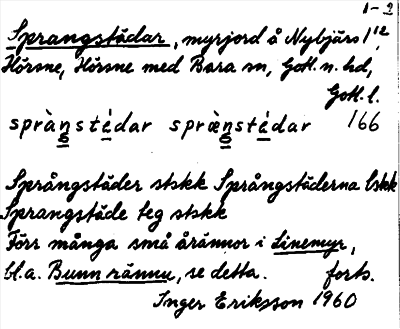 1-2
Sprangstädar, myrjord å Nybjärs 1¹²,
Hörsne, Hörsne med Bara sn, Gotl. n. hd,
Gotl. l.
sprànstédar sprænstédar 166
Språngstäder stskk Språngstäderna bskk
Sprangstäde teg stskk
Förr många små årännor i Linemyr,
bl.a. Bunn rännu, se detta. forts.
Inger Eriksson 1960